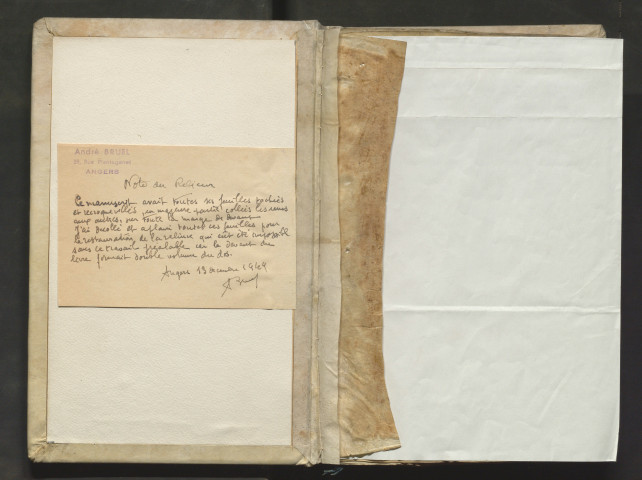 André BRUEL
ANGERS
Note du Relieur
Ce manuscrit avait toutes ses feuilles
et recroquevillés, en majeure partie collées les unes
aux autres, sur toute la marge de
J'ai et aplani toutes ces feuilles pour
la restauration de la reliure qui eut été impossible
sans ce travail préalable car la du
livre formait double volume du dos.
Angers 13 1969